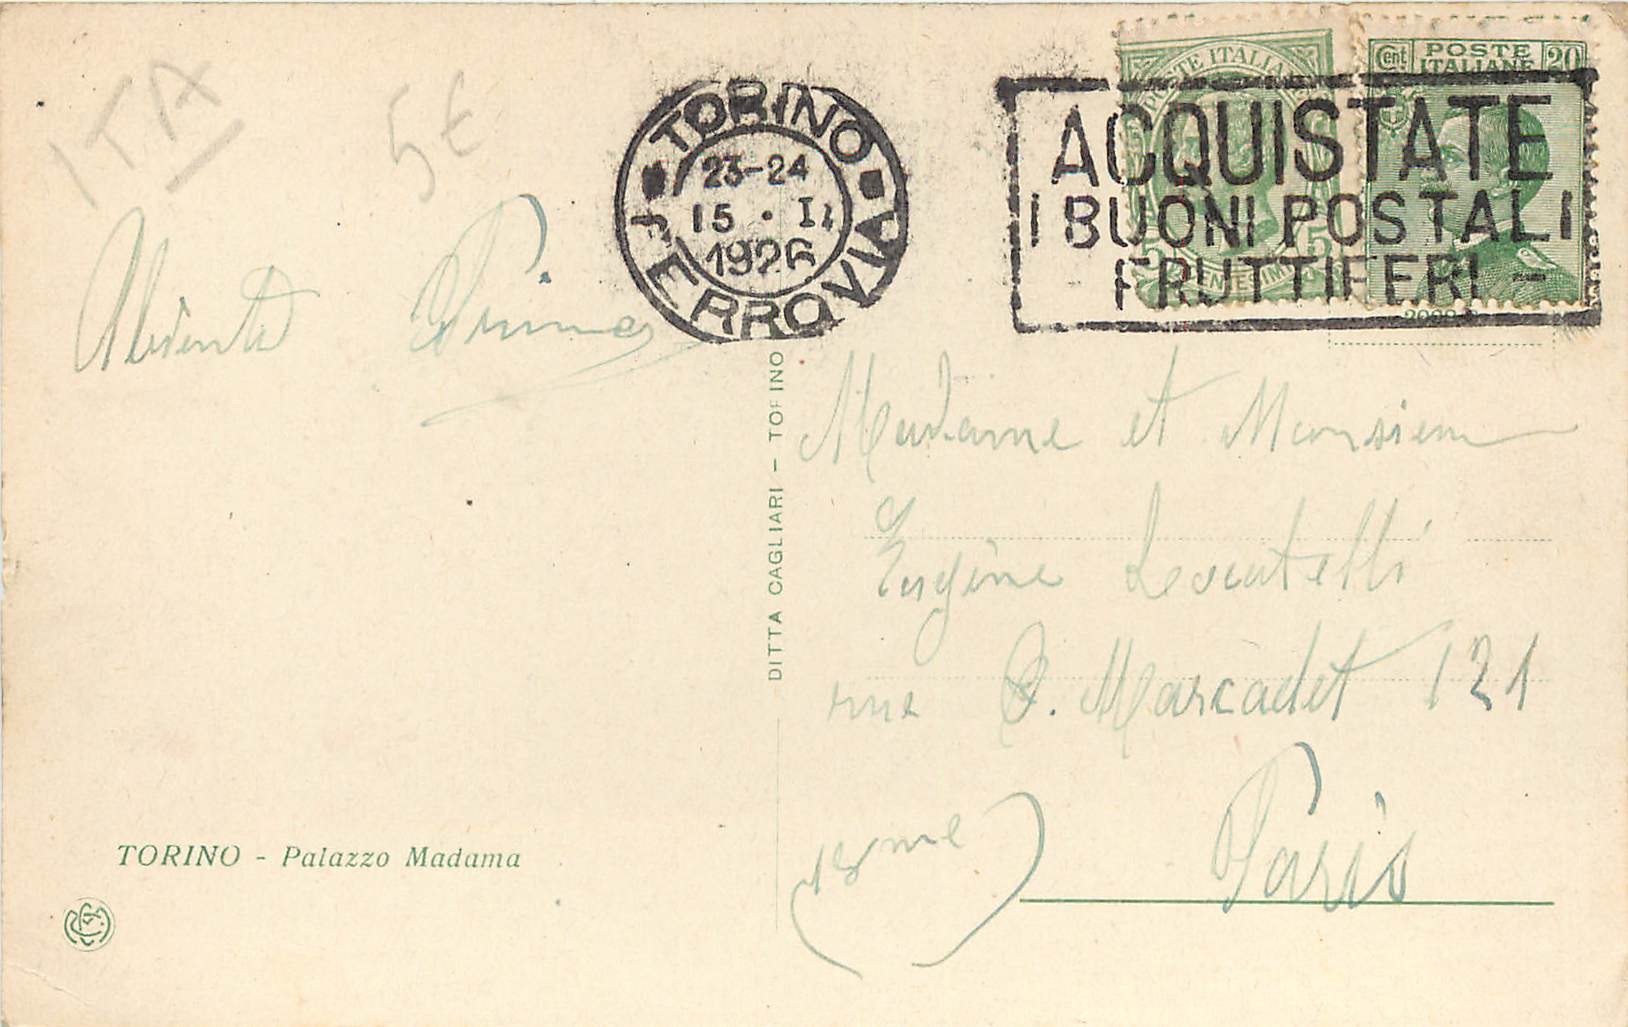 ITA
5€
TORINO
FERROVIA
23-24
15 . II
1926
POSTE ITALIANE
5 5
CENTESIMI
Cent POSTE ITALIANE 20
ACQUISTATE
I BUONI POSTALI
FRUTTIFERI -
DITTA CAGLIARI - TORINO
Madame et Monsieur
Eugène Locatelli
rue Marcadet 121
Paris
(18me)
TORINO - Palazzo Madama